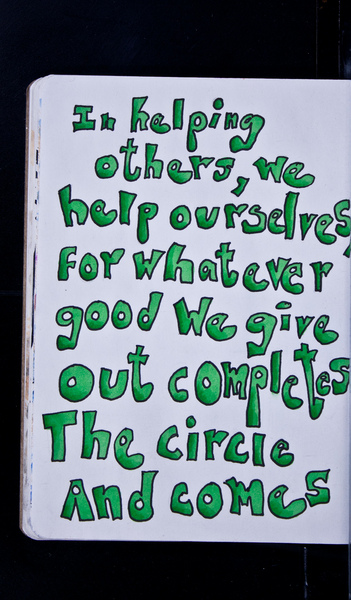 In helping
others, we
help ourselves,
for whatever
good We give
out completes
The circle
And comes